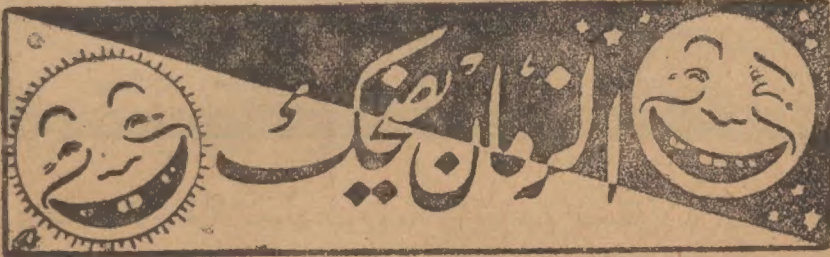 الزمان يضحك